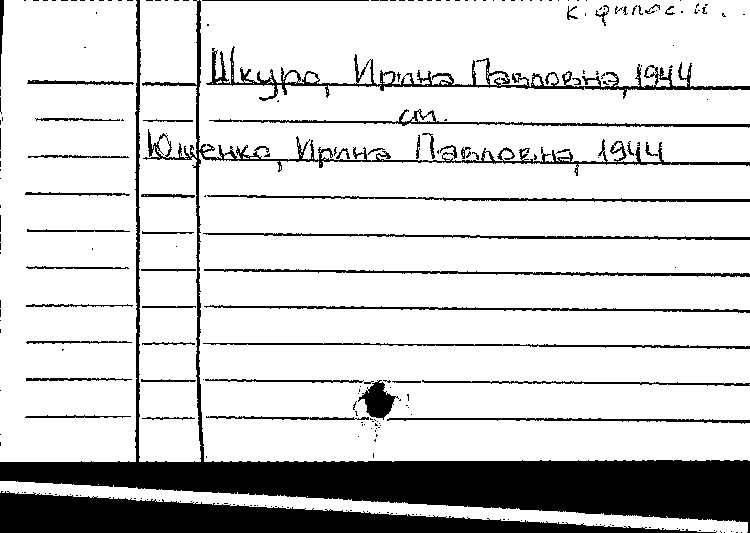 к. филос. н.
Шкуро, Ирина Павловна, 1944
см.
Ющенко, Ирина Павловна, 1944